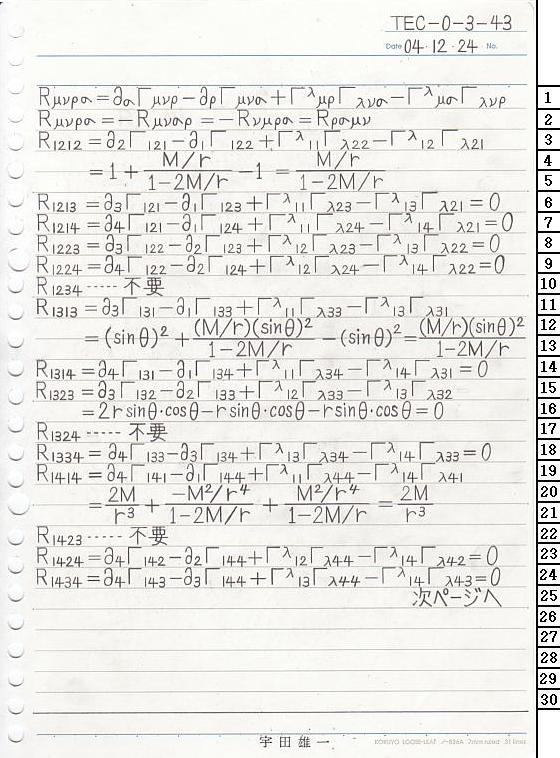 TEC-0-3-43
Date 04・12・24 No.
Rμνρσ=∂σΓμνρ-∂ρΓμνσ+Γ^λμρΓλνσ-Γ^λμσΓλνρ 1
Rμνρσ=-Rμνσρ=-Rνμρσ=Rρσμν 2
R1212=∂2Γ121-∂1Γ122+Γ^λ11Γλ22-Γ^λ12Γλ21 3
=1+(M/r)/(1-2M/r)-1=(M/r)/(1-2M/r) 4 5
R1213=∂3Γ121-∂1Γ123+Γ^λ11Γλ23-Γ^λ13Γλ21=0 6
R1214=∂4Γ121-∂1Γ124+Γ^λ11Γλ24-Γ^λ14Γλ21=0 7
R1223=∂3Γ122-∂2Γ123+Γ^λ12Γλ23-Γ^λ13Γλ22=0 8
R1224=∂4Γ122-∂2Γ124+Γ^λ12Γλ24-Γ^λ14Γλ22=0 9
R1234 ----- 不要 10
R1313=∂3Γ131-∂1Γ133+Γ^λ11Γλ33-Γ^λ13Γλ31 11
=(sinθ)²+(M/r)(sinθ)²/(1-2M/r)-(sinθ)²=(M/r)(sinθ)²/(1-2M/r) 12 13
R1314=∂4Γ131-∂1Γ134+Γ^λ11Γλ34-Γ^λ14Γλ31=0 14
R1323=∂3Γ132-∂2Γ133+Γ^λ12Γλ33-Γ^λ13Γλ32 15
=2rsinθ・cosθ-rsinθ・cosθ-rsinθ・cosθ=0 16
R1324 ----- 不要 17
R1334=∂4Γ133-∂3Γ134+Γ^λ13Γλ34-Γ^λ14Γλ33=0 18
R1414=∂4Γ141-∂1Γ144+Γ^λ11Γλ44-Γ^λ14Γλ41 19
=2M/r³+(-M²/r⁴)/(1-2M/r)+(M²/r⁴)/(1-2M/r)=2M/r³ 20 21
R1423 ----- 不要 22
R1424=∂4Γ142-∂2Γ144+Γ^λ12Γλ44-Γ^λ14Γλ42=0 23
R1434=∂4Γ143-∂3Γ144+Γ^λ13Γλ44-Γ^λ14Γλ43=0 24
次ページへ 25
26
27
28
29
30
宇田雄一
KOKUYO LOOSE-LEAF ノ-836A 7mm ruled 31 lines